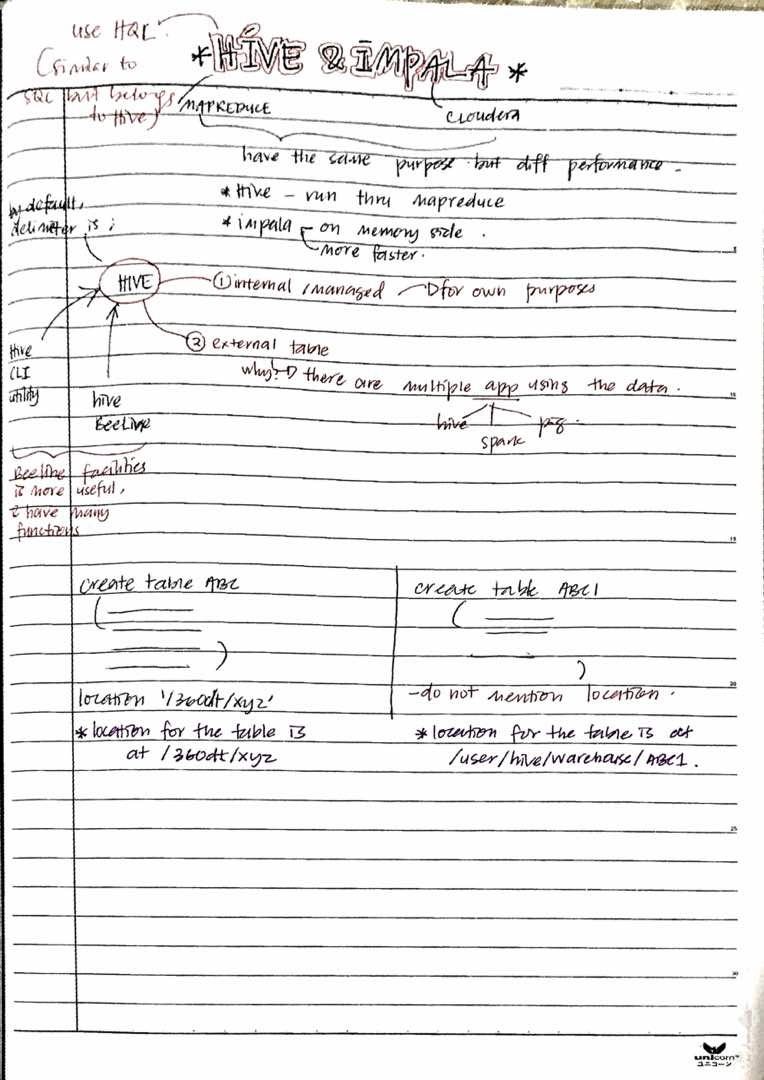 use HQL
(similar to
SQL but belongs
to Hive)
* HIVE & IMPALA *
MAPREDUCE
Cloudera
have the same purpose but diff performance.
* Hive - run thru mapreduce
* impala - on memory side.
more faster.
by default,
delimeter is ;
HIVE
① internal / managed → for own purposes
② external table
why? → there are multiple app using the data.
hive
spark
pig
Hive
CLI
utility
hive
BeeLine
Beeline facilities
is more useful,
& have many
functions
create table ABC
(
)
location '/360dt/xyz'
* location for the table is
at /360dt/xyz
create table ABC1
(
)
- do not mention location.
* location for the table is at
/user/hive/warehouse/ABC1.
5
10
15
20
25
30
unicorn
ユニコーン